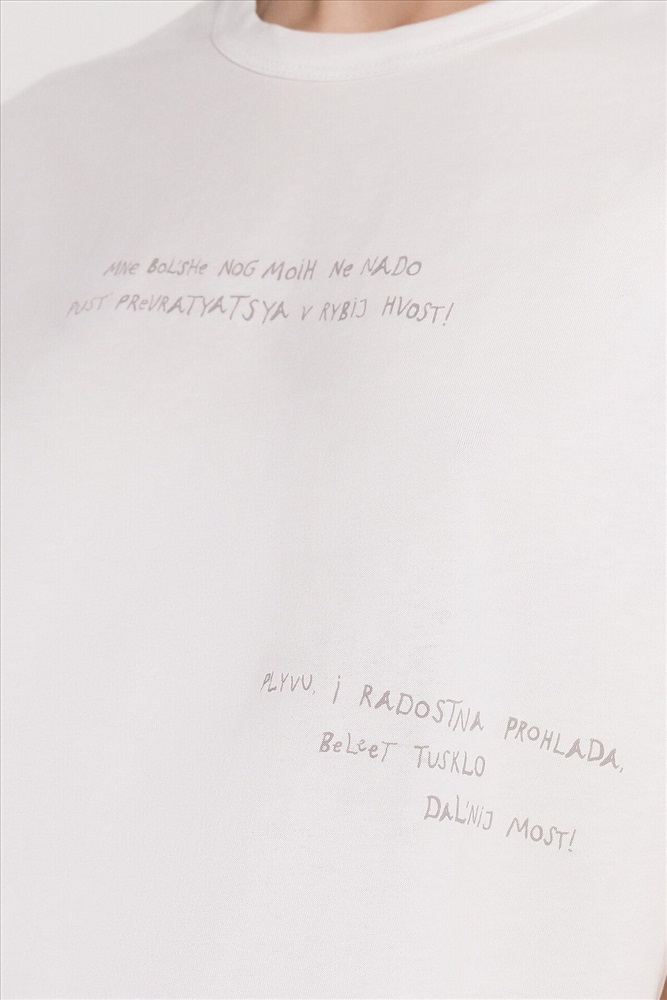 MNe BOL'SHe NOG MOiH Ne NADO
PUST' PReVRATYATSYA V RYBiJ HVOST!
PLYVU, i RADOSTNA PROHLADA,
BeLeeT TUSKLO
DAL'NiJ MOST!